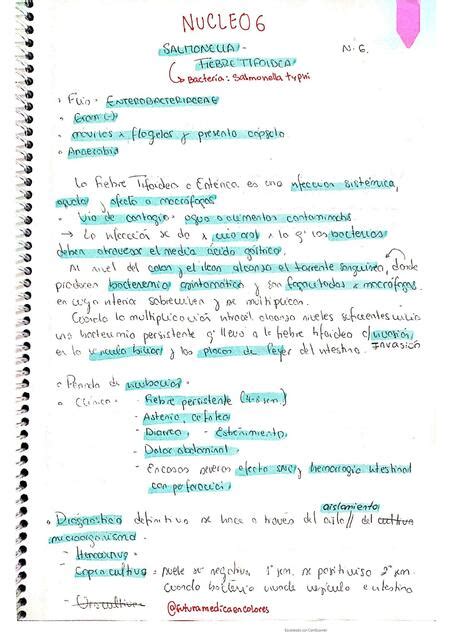 NUCLEO 6
SALMONELLA -
N. 6.
FIEBRE TIFOIDEA
↳ Bacteria: Salmonella typhi
ENTEROBACTERIACEAE
• Gram (-)
• móviles x flagelos y presenta cápsula
• Anaerobia
La fiebre Tifoidea o Entérica es una infección sistémica,
aguda y afecta a macrófagos
• Vía de contagio: agua o alimentos contaminados.
→ La infección se da x vía oral x lo q' las bacterias
deben atravesar el medio ácido gástrico.
Al nivel del colon y el ileon alcanza el torrente sanguíneo, donde
producen bacteremia asintomática y son fagocitadas x macrófagos.
en cuyo interior sobreviven y se multiplican.
Cuando la multiplicación intracel alcanza niveles suficientes
una bacteremia persistente q' lleva a la fiebre tifoidea c/ invasión
INVASIÓN
en la vesícula biliar y las placas de Peyer del intestino.
• Período de incubación:
• Clínica: - Fiebre persistente (4-8 sem.)
- Astenia, cefalea
- Diarrea - Estreñimiento,
- Dolor abdominal
- En casos severos afecta SNC y hemorragia intestinal
con perforación
aislamiento
• Diagnóstico definitivo se hace a través del del cultivo
microorganismo -
- Hemocultivo
- Coprocultivo = puede ser negativo 1° sem. se positiviza 2° sem.
Cuando bacteria invade vesícula e intestino
- Urocultivo
@futuramedicaencolores
Escaneado con CamScanner